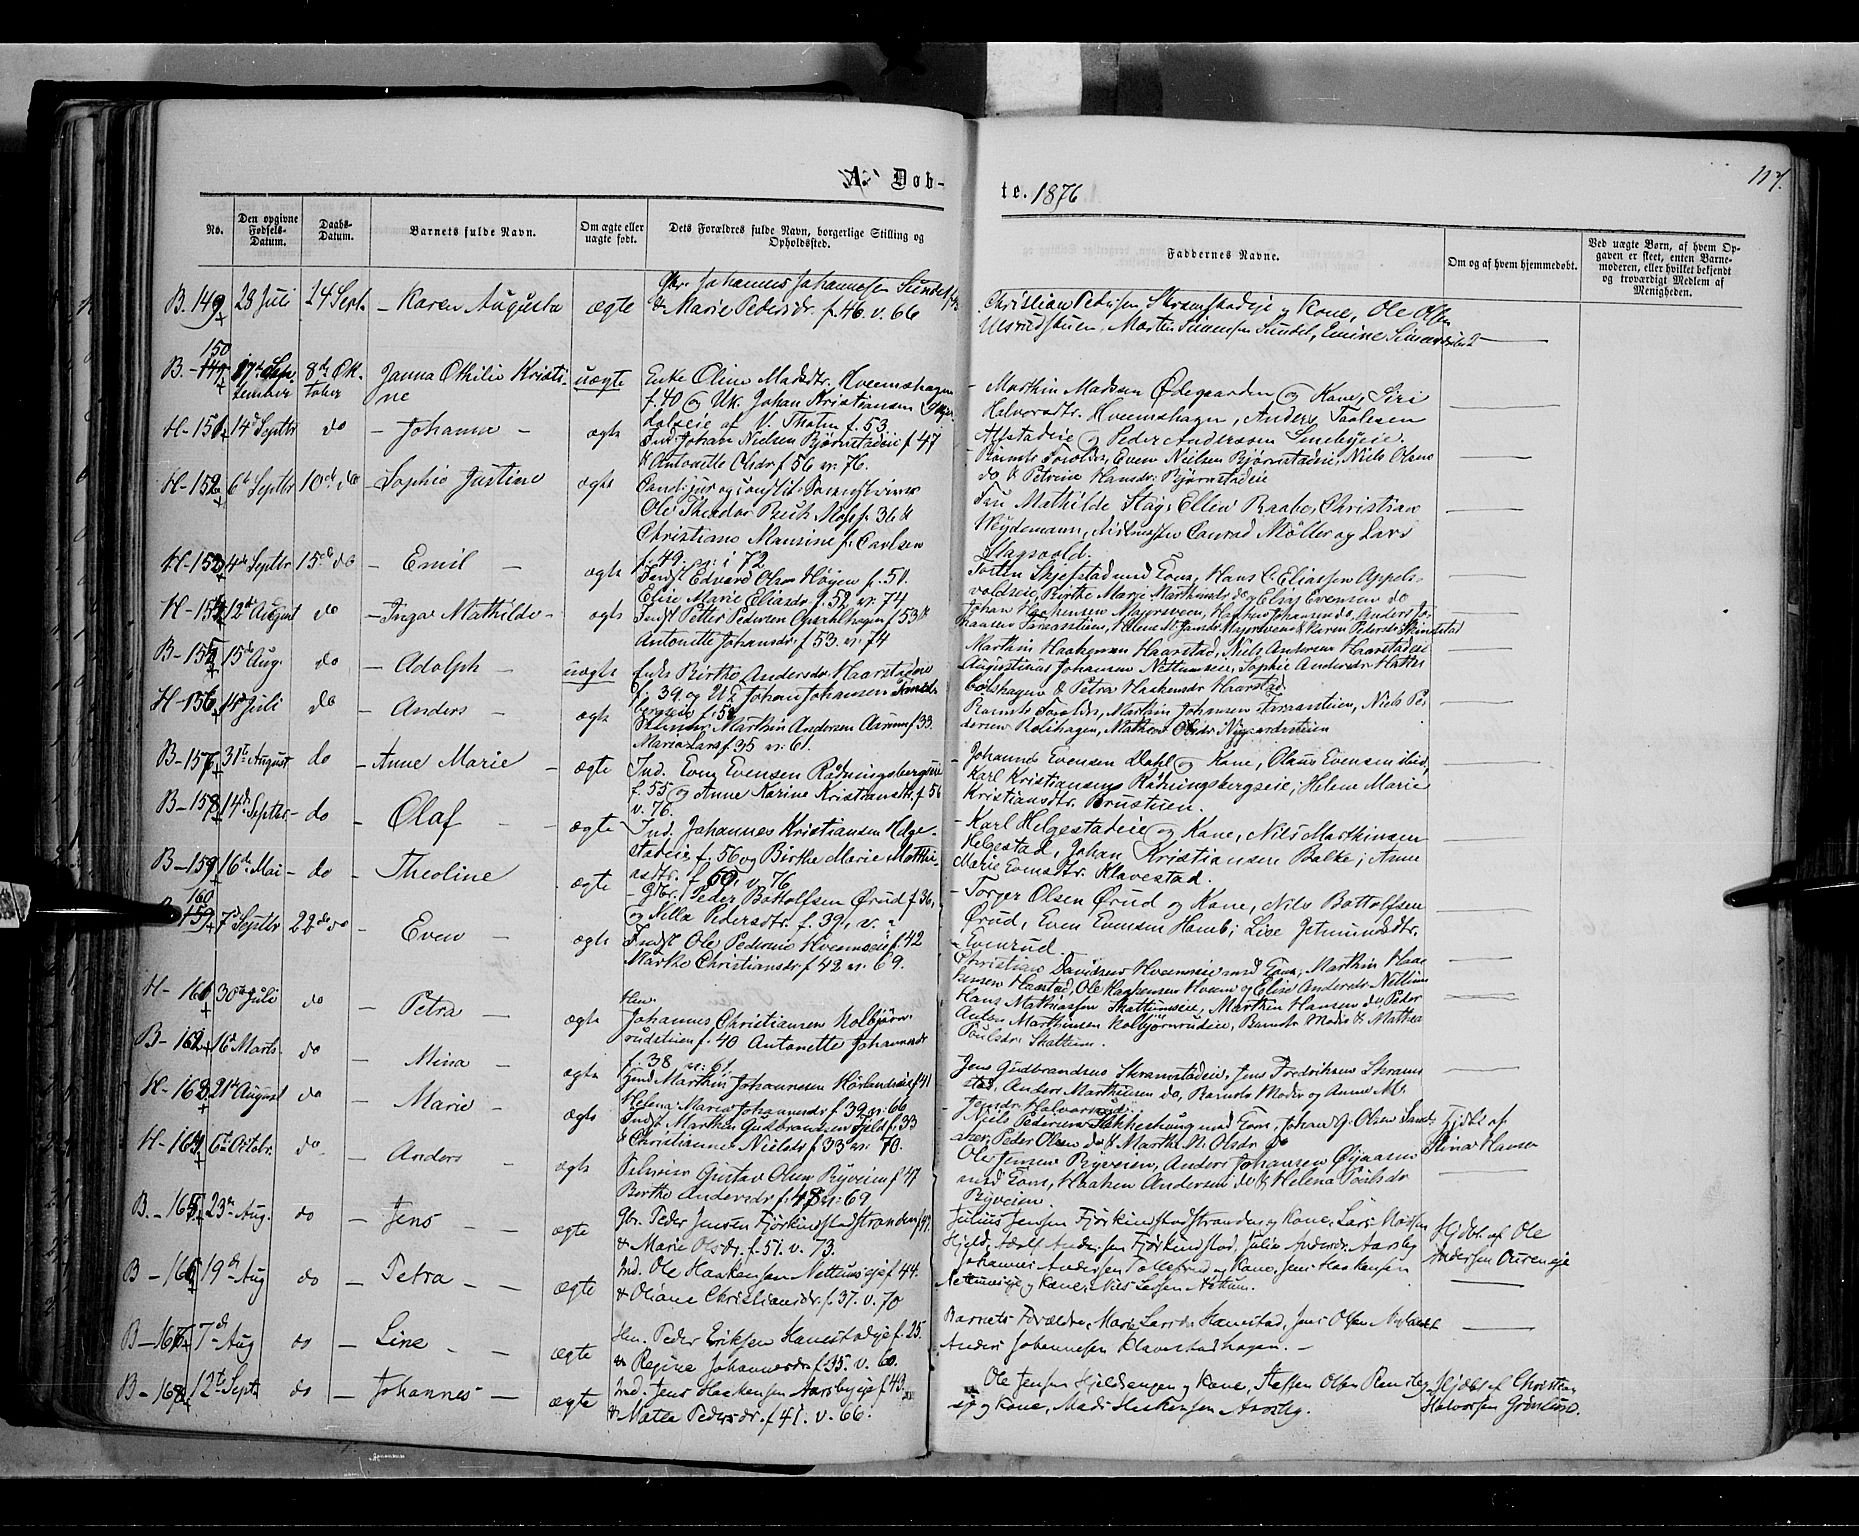 A. Døb-
te. 1876
117.
No.
Den opgivne Fødsels-Datum.
Daabs-Datum.
Barnets fulde Navn.
Om ægte eller uægte født.
Dets Forældres fulde Navn, borgerlige Stilling og Opholdssted.
Faddernes Navne.
Om og af hvem hjemmedøbt.
Ved uægte Børn, af hvem Op-
gaven er skeet, enten Barne-
moderen, eller hvilket bekjendt
og troværdigt Medlem af
Menigheden.
B. 149 28 Juli 24 Sept. – Karen Augusta ægte
Gbr. Johannes Johannesen Sundet f.
& Marie Pedersdr. f. 46. v. 66
Christian Pedersen Skramstadeie og Kone, Ole Olsen
Ulsrudstuen, Martin Simensen Sundet, Emine Simensdr
B. 150 17de Sep-
tember 8de Ok-
tober Janna Othilie Kristi-
ne uægte
Enke Oline Madsdtr. Hveemshagen
f. 40 og Uk. Johan Kristiansen
f. 53
– Marthin Madsen Ødegaarden og Kone, Siri
Halvorsdtr. Hveemshagen, Anders Paulsen
Alfstadeie og Peder Anderssen Linebyeie.
H – 151 14de Septbr do – Johanna – ægte
Inds. Johan Nielsen Bjørnstadeie f 47
& Antonette Olsdr f 56 v. 76.
Barnets Forældre, Even Nielsen Bjørnstadeie, Niels Olsen
do & Petrine Hansdr. Bjørnstadeie
H – 152 6te Septbr 10de do – Sophie Justine ægte
Cand. jur og
Ole Theodor Buch Moss f. 36 &
Christiane Mansine f. Carlsen
f. 49. v. i 72
Fru Mathilde Stag, Ellen Raabe, Christian
Weydemann, Conrad Möller og Lars
Stagsvold.
H – 153 4de Septbr 15de do – Emil – ægte
Inds Edvard Olsen Høyen f. 51.
Elise Marie Eliasdr. f. 52 v. 74
Torsten Skjefstad med Kone, Hans C. Eliassen Appels-
voldseie, Birthe Marie Marthinsdr do, Elise Evensen do
H – 154 12te August do – Inga Mathilde – ægte
Inds Petter Pedersen Opsahlhagen f 53 &
Antonette Johansdr. f. 53. v. 74
Johan Haakensen Majorsveen,
B – 155 15de Aug. do – Adolph – uægte
Enke Birthe Andersdr. Haarstadeie
f. 39 og Uk Johan Johansen
f. 58
Marthin Haakensen Haarstad, Niels Andersen Haarstadeie
Augustinus Johansen Nettumseie, Sophie Andersdr
& Petra Haakensdr Haarstad.
H – 156 14de Juli do – Anders – ægte
Marthin Andersen Aarum f 33.
Maria Larsdr f 35 v. 61.
Barnets Foreldre, Marthin Johansen, Niels Pe-
dersen Rolihagen, Mathea Olsdr Nygaardsteien
B – 157 31te August do – Anne Marie – ægte
Ind. Even Evensen Rådningsbergseie
f. 55 og Anne Karine Kristiansdtr. f 56
v. 76.
– Johannes Evensen Dahl og Kone, Olaus Evensen ibid,
Karl Kristiansen Rådningsbergseie; Helene Marie
Kristiansdtr. Brustuen.
B – 158 14de Septbr. – do – Olaf – ægte
Ind. Johannes Kristiansen Helge-
stadeie f. 56 og Birthe Marie Matthi-
asdtr. f. 50. v. 76
– Karl Helgestadeie og Kone, Nils Marthinsen
Helgestad, Johan Kristiansen Balke; Anne
Marie Evensdtr. Klavestad.
B – 159 16de Mai – do – Theoline – ægte
– Gbr. Peder Bottolfsen Ørud f 36,
og Nilla Pedersdtr. f. 39, v. "
– Torger Olsen Ørud og Kone, Nils Bottolfsen
Ørud, Even Evensen Homb; Lise Jetmundsdtr.
– Evenrud.
160 7de Septbr 22de do – Even – ægte
Inds Ole Pedersen Hveemseie f. 42
Marthe Christiansdr f 42 v. 69.
Christian Davidsen Hveemseie med Kone, Marthin Haa-
kensen Haarstad, Ole Haakensen Hveem og Elise Andersdr Nettum
H – 161 30te Juli do – Petra – ægte
Hm.
Johannes Christiansen Kolbjørn-
rudeien f. 40 Antonette Johannesdr
f. 38 v. 61.
Hans Mathiassen Skattumseie, Marthin Hansen do Peder
Anton Marthinsen Kolbjørnrudeie, Barnets Moder & Mathea
Poulsdr. Skattum.
B – 162 16de Marts. do – Mina – ægte
Inds Marthin Johannesen f 41
Helena Maria Johannesdr f 39 v. 66
Jens Gudbrandsen Skramstadeie, Jens Fredriksen Skram-
stad, Anders Marthinsen do, Barnets Moder og Anne M.
Jensdr.
H – 163 21de August do – Marie – ægte
Inds Marthin Gudbrandsen f 33
& Christianne Nielsdr f 33 v. 70.
Niels Pedersen med Kone, Johan G. Olsen
Peder Olsen do & Marthe M. Olsdr do
Hjdbt af
Stina Hansen
H – 164 6te Octobr. do – Anders – ægte
Selveier Gustav Olsen Byveien f 47
Berthe Andersdr f. 48 v. 69
Ole Jensen Byveien, Anders Johansen
med Kone, Haaken Andersen do & Helena Poulsdr
Byveien.
B. – 165 23de Aug. do – Jens – – ægte
Gbr. Peder Jensen Fjørkindstadstranden f 47.
& Marie Olsdr. f. 51. v. 73.
Julius Jensen Fjørkindstadstranden og Kone, Lars Madsen
Hjeld, Adolf Andersen Fjørkindstad, Julia Andersdr. Aarsby
Hjdbt. af Ole
Andersen Ourenseie
B – 166 19de Aug do – Petra – – ægte
Ind. Ole Haakensen Nettumseie f 44.
& Oliane Christiansdr. f. 37. v. 70
Johannes Andersen og Kone, Jens Haakensen
Nettumseie og Kone, Nils Larsen Nettum.
B – 167 7de Aug do – Line – – ægte
Hm. Peder Eriksen Hanestadeie f. 25.
& Regine Johannesdr. f. 35. v. 60.
Barnets Forældre, Mari Larsdr. Hanestad, Jens Olsen
Anders Johannesen Klavestadhagen. –
B – 168 12te Septbr do – Johannes – ægte
Ind. Jens Haakensen Aarsbyeie f. 43
& Matea Pedersdr. f. 41. v. 66.
Ole Jensen Hjeldsengen og Kone, Steffen Olsen
og Kone, Mads Haakensen Aarsby.
Hjdbt af Christian
Halvorsen Grønlund.